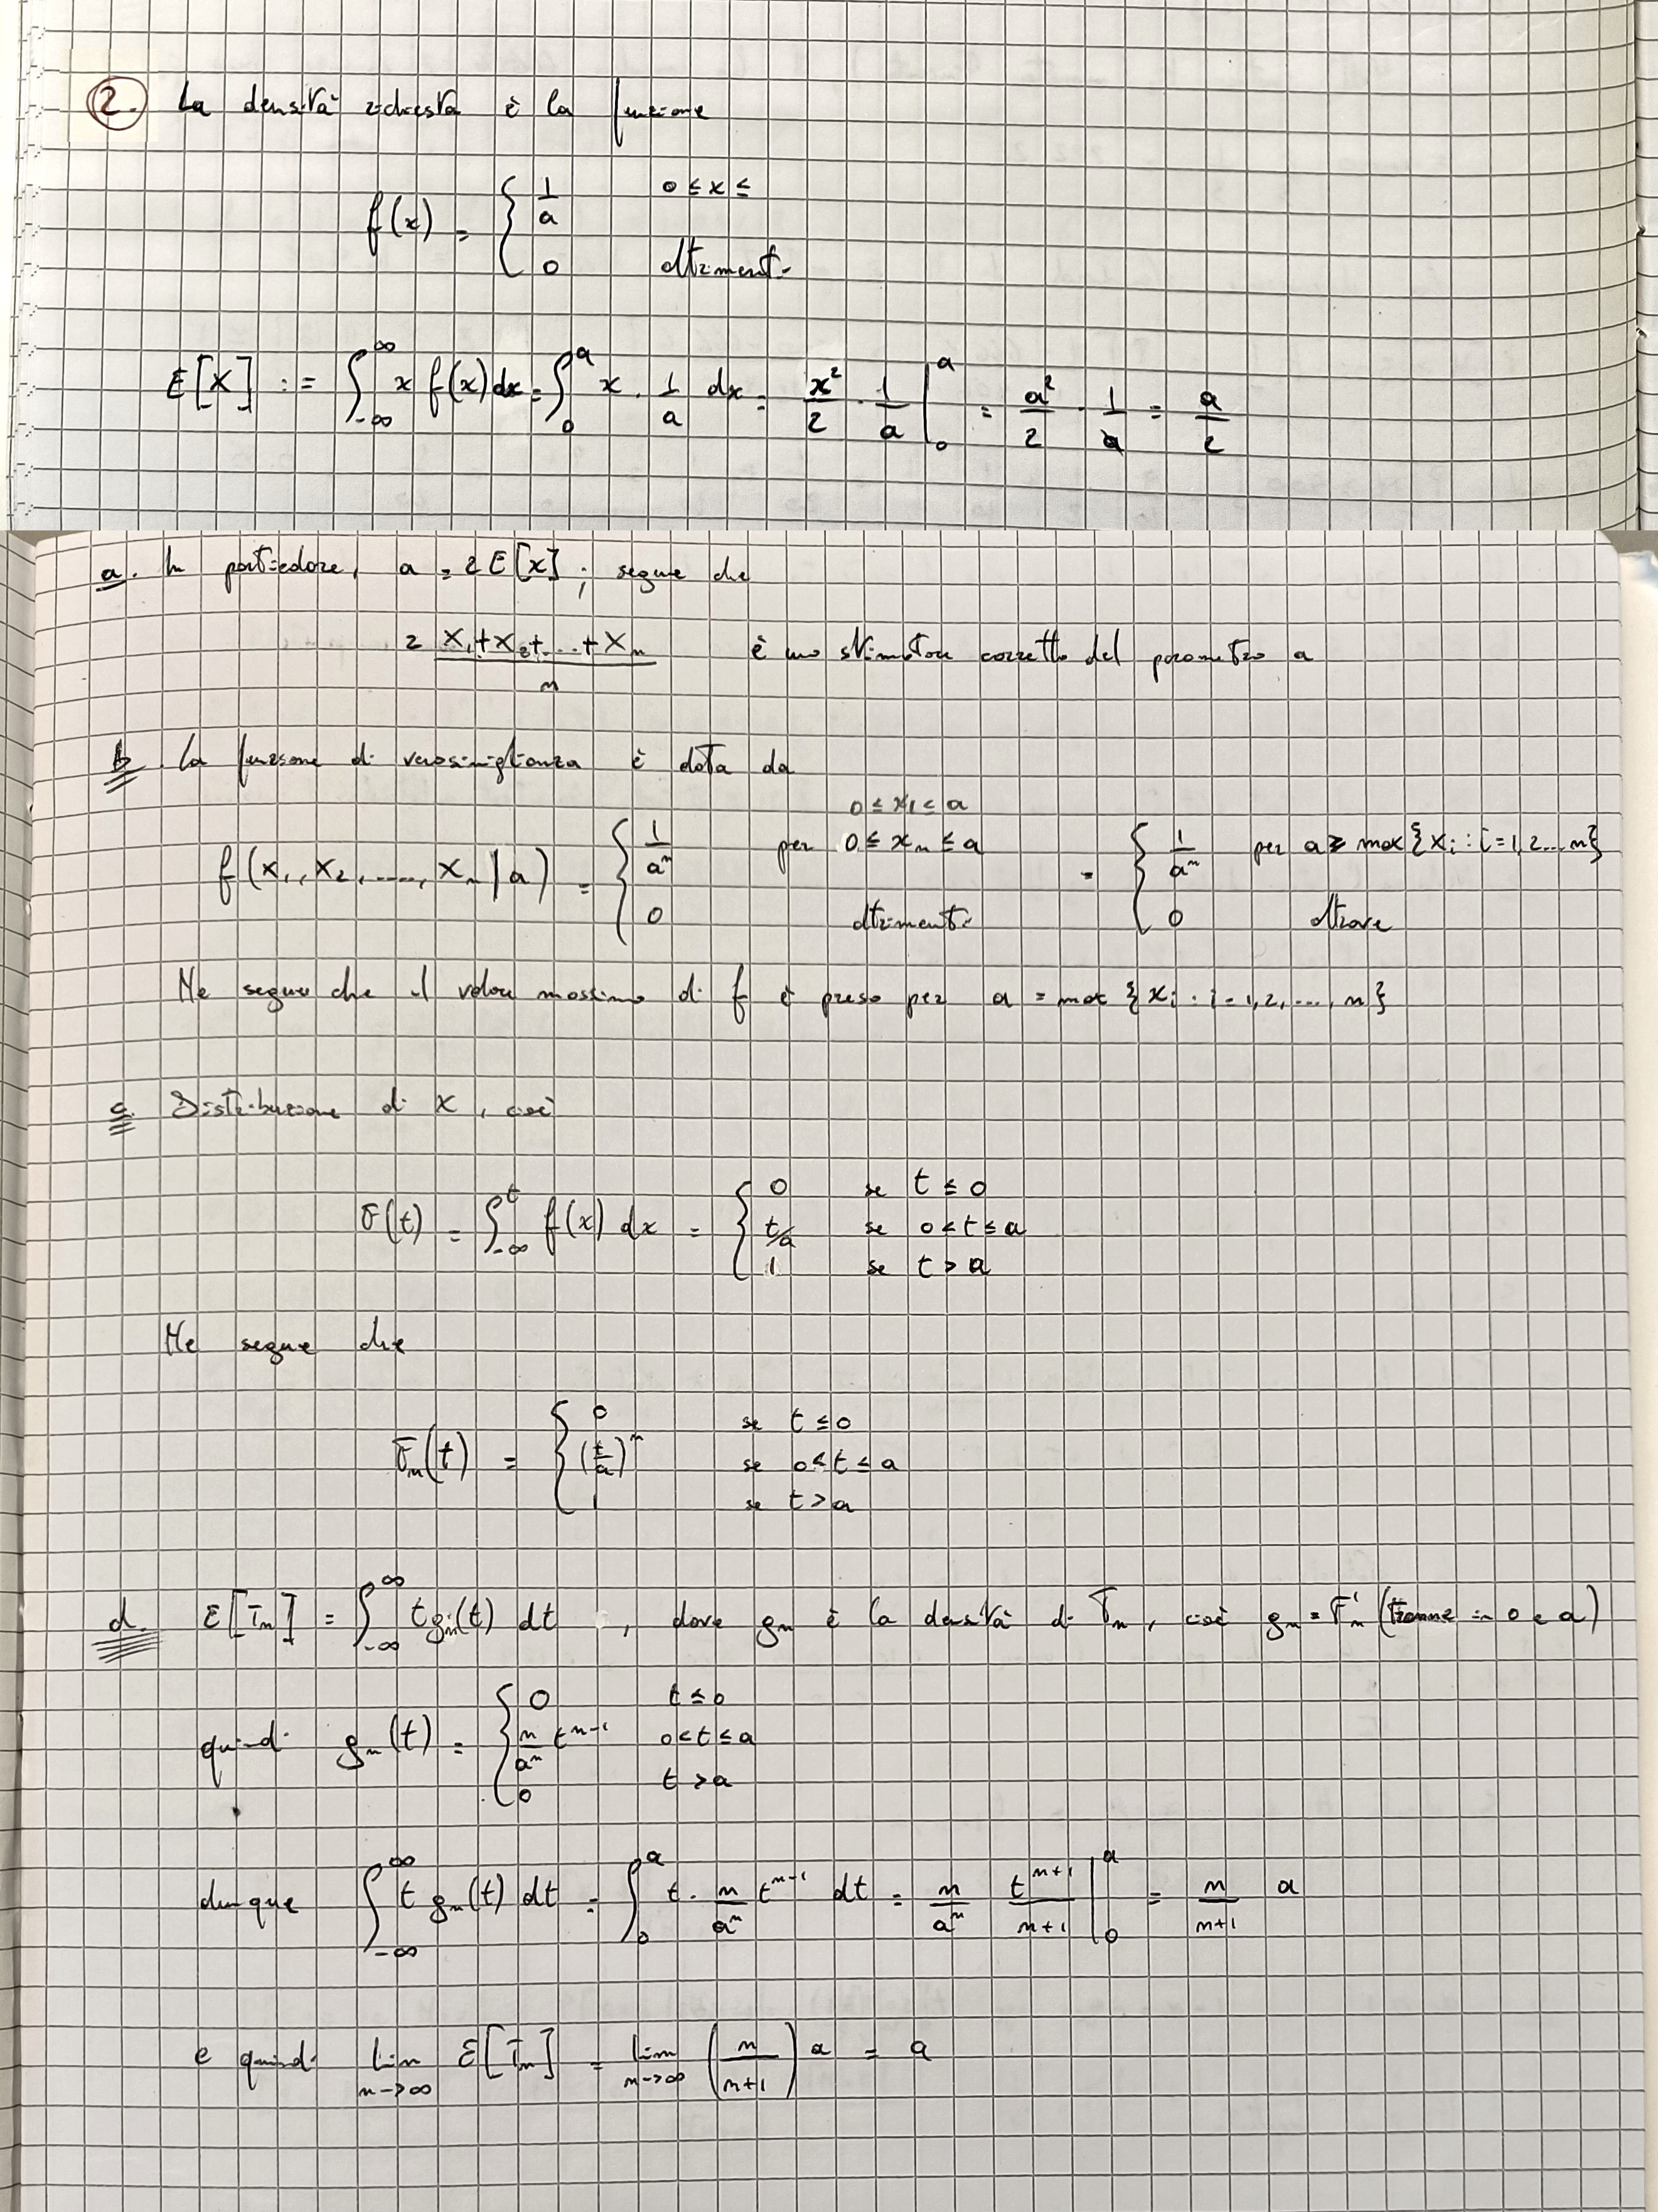 2. La densità richiesta è la funzione
f(x) = { 1/a 0 ≤ x ≤
0 altrimenti
E[X] := ∫_{-∞}^{∞} x f(x) dx = ∫_0^a x · 1/a dx = x²/2 · 1/a |_0^a = a²/2 · 1/a = a/2
a. In particolare, a = 2E[X] ; segue che
2 (X₁+X₂+...+Xₙ)/n è uno stimatore corretto del parametro a
b. La funzione di verosimiglianza è data da
0 ≤ x₁ ≤ a
f(x₁, x₂, ...., xₙ | a) = { 1/aⁿ per 0 ≤ xₙ ≤ a = { 1/aⁿ per a ≥ max{xᵢ : i=1,2...n}
0 altrimenti 0 altrove
Ne segue che il valore massimo di f è preso per a = max {xᵢ : i = 1,2,...,n}
c. Distribuzione di X, cioè
F(t) = ∫_{-∞}^t f(x) dx = { 0 se t ≤ 0
t/a se 0 < t ≤ a
1 se t > a
Ne segue che
Fₙ(t) = { 0 se t ≤ 0
(t/a)ⁿ se 0 < t ≤ a
1 se t > a
d. E[Tₙ] = ∫_{-∞}^{∞} t gₙ(t) dt , dove gₙ è la densità di Tₙ, cioè gₙ = Fₙ' (tranne in 0 e a)
quindi gₙ(t) = { 0 t ≤ 0
n/aⁿ tⁿ⁻¹ 0 < t ≤ a
0 t > a
dunque ∫_{-∞}^{∞} t gₙ(t) dt = ∫_0^a t · n/aⁿ tⁿ⁻¹ dt = n/aⁿ tⁿ⁺¹/(n+1) |_0^a = n/(n+1) a
e quindi lim_{n->∞} E[Tₙ] = lim_{n->∞} (n/(n+1)) a = a